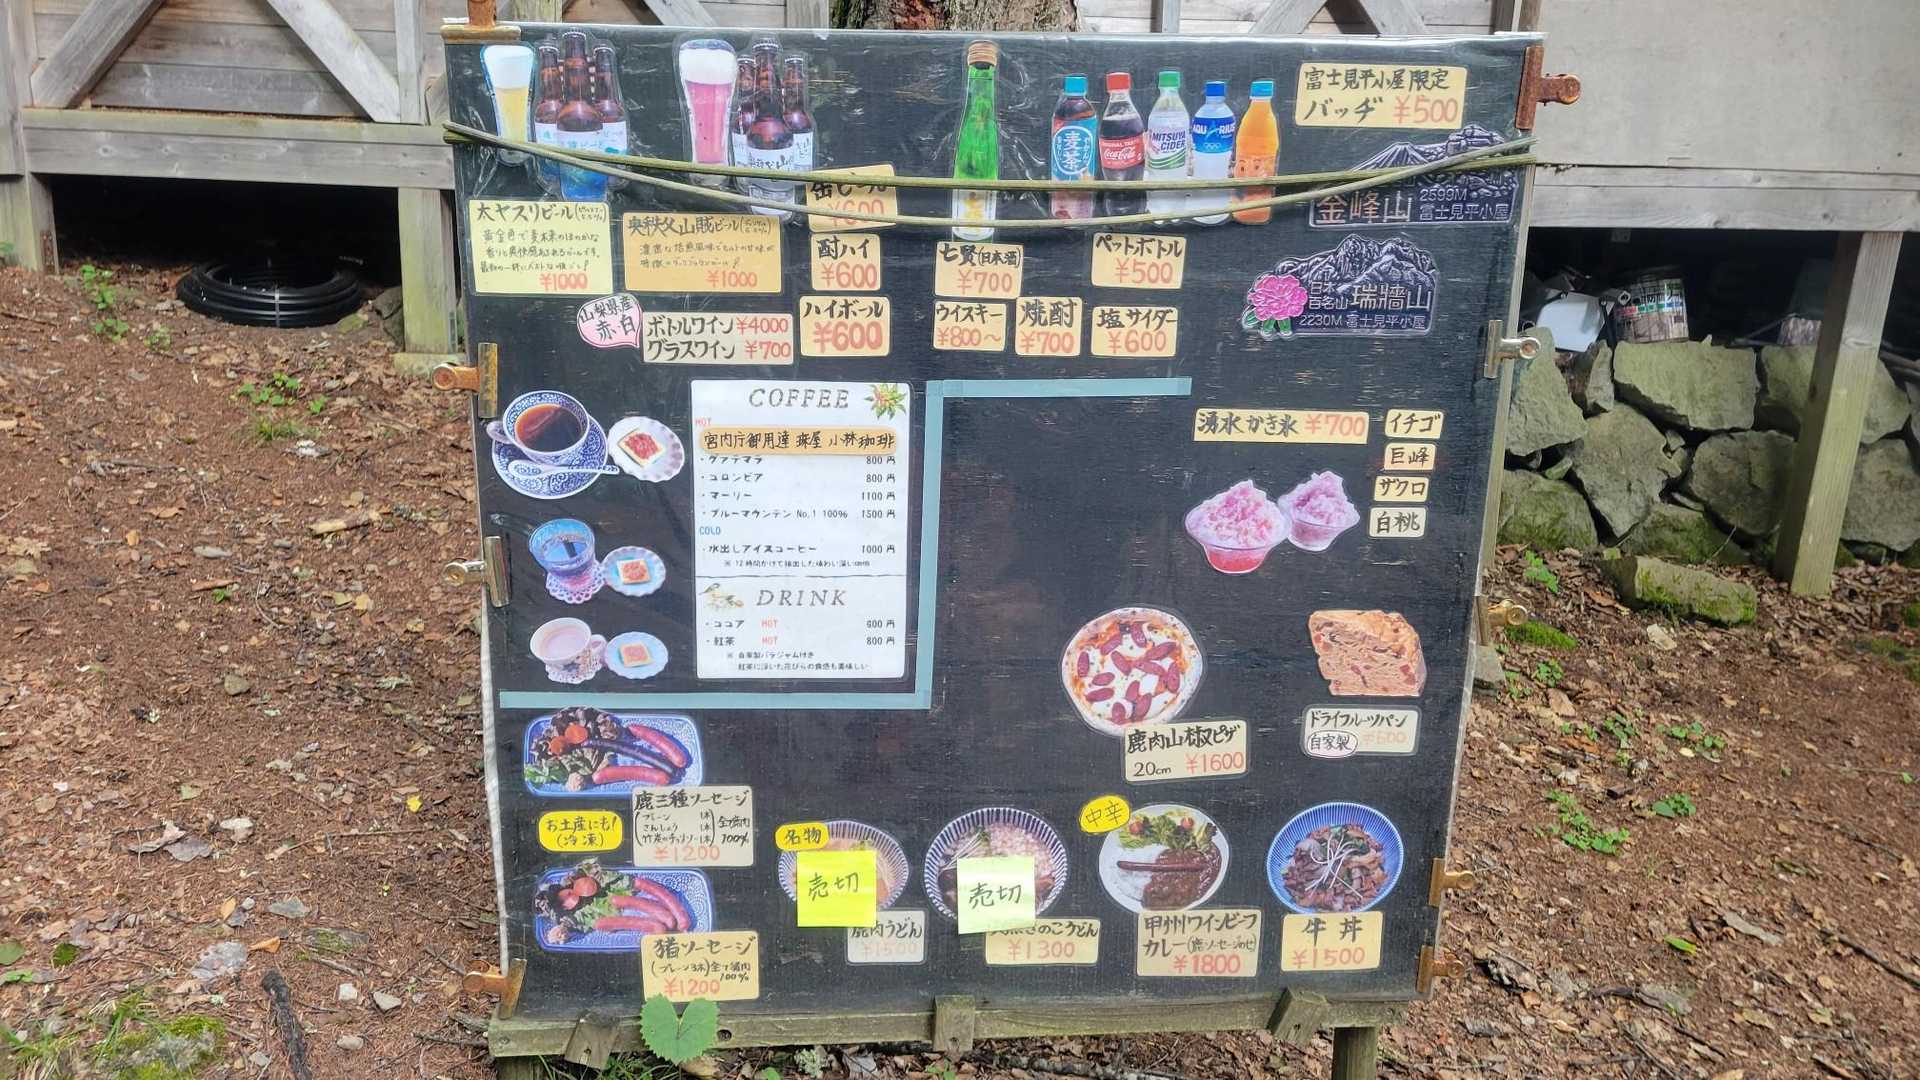 富士見平小屋限定
バッヂ ¥500
麦茶
Coca-Cola
MITSUYA CIDER
AQUARIUS
金峰山
2599M
富士見平小屋
日本百名山 瑞牆山
2230M 富士見平小屋
太ヤスリビール
黄金色で麦本来のほのかな
香りと爽快感あふれるビールです。
¥1000
奥秩父山賊ビール
¥1000
缶ビール
¥600
酎ハイ
¥600
ハイボール
¥600
七賢(日本酒)
¥700
ウイスキー
¥800〜
焼酎
¥700
ペットボトル
¥500
塩サイダー
¥600
山梨県産
赤・白
ボトルワイン ¥4000
グラスワイン ¥700
COFFEE
HOT
宮内庁御用達 珠屋 小林珈琲
・グァテマラ 800円
・コロンビア 800円
・マーリー 1100円
・ブルーマウンテン No.1 100% 1500円
COLD
・水出しアイスコーヒー 1000円
※ 12時間かけて抽出した味わい深い
DRINK
・ココア HOT 600円
・紅茶 HOT 800円
※ 自家製バラジャム付き
紅茶に浮いた花びらの食感も美味しい
湧水かき氷 ¥700
イチゴ
巨峰
ザクロ
白桃
鹿肉山椒ピザ
20cm ¥1600
ドライフルーツパン
自家製 ¥600
鹿三種ソーセージ
プレーン 1本
さんしょう 1本
全て鹿肉
100%
¥1200
お土産にも!
(冷凍)
猪ソーセージ
(プレーン3本) 全て猪肉
100%
¥1200
名物
売切
鹿肉うどん
¥1500
売切
きのこうどん
¥1300
中辛
甲州ワインビーフ
カレー(鹿ソーセージのせ)
¥1800
牛丼
¥1500